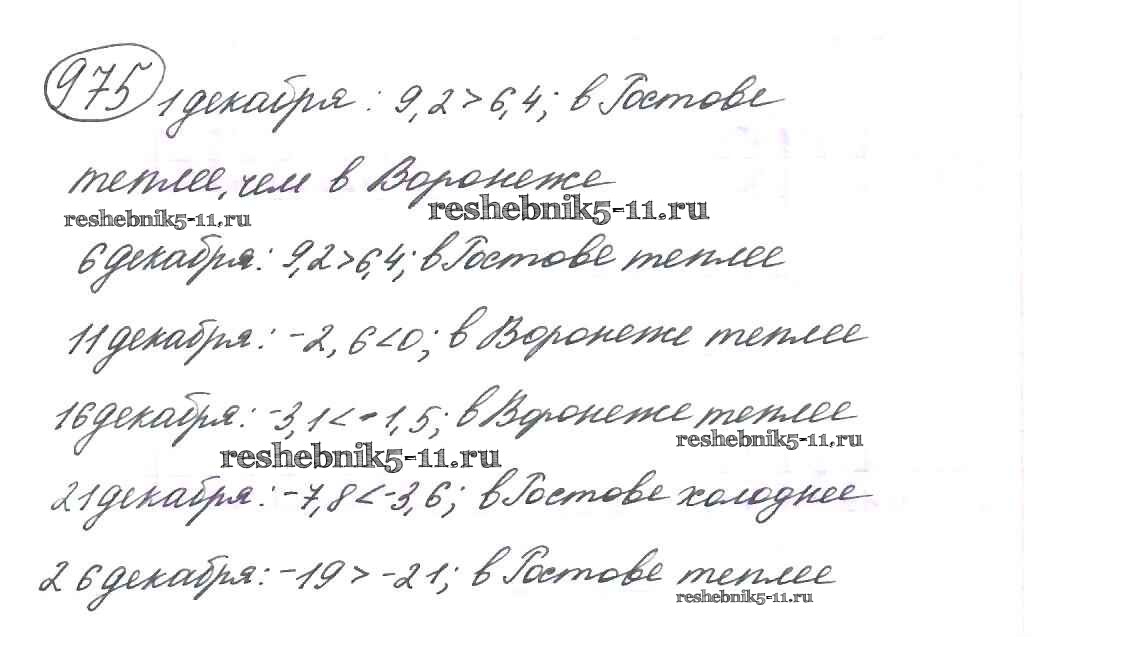 975 1 декабря: 9,2 > 6,4; в Ростове
теплее, чем в Воронеже
reshebnik5-11.ru reshebnik5-11.ru
6 декабря: 9,2 > 6,4; в Ростове теплее
11 декабря: -2,6 < 0; в Воронеже теплее
16 декабря: -3,1 < -1,5; в Воронеже теплее
reshebnik5-11.ru
reshebnik5-11.ru
21 декабря: -7,8 < -3,6; в Ростове холоднее
26 декабря: -19 > -21; в Ростове теплее
reshebnik5-11.ru